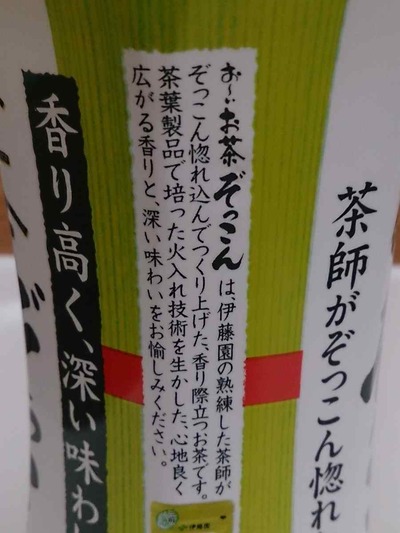 茶師がぞっこん惚れ
お〜いお茶ぞっこんは、伊藤園の熟練した茶師が
ぞっこん惚れ込んでつくり上げた、香り際立つお茶です。
茶葉製品で培った火入れ技術を生かした、心地良く
広がる香りと、深い味わいをお愉しみください。
香り高く、深い味わ
伊藤園